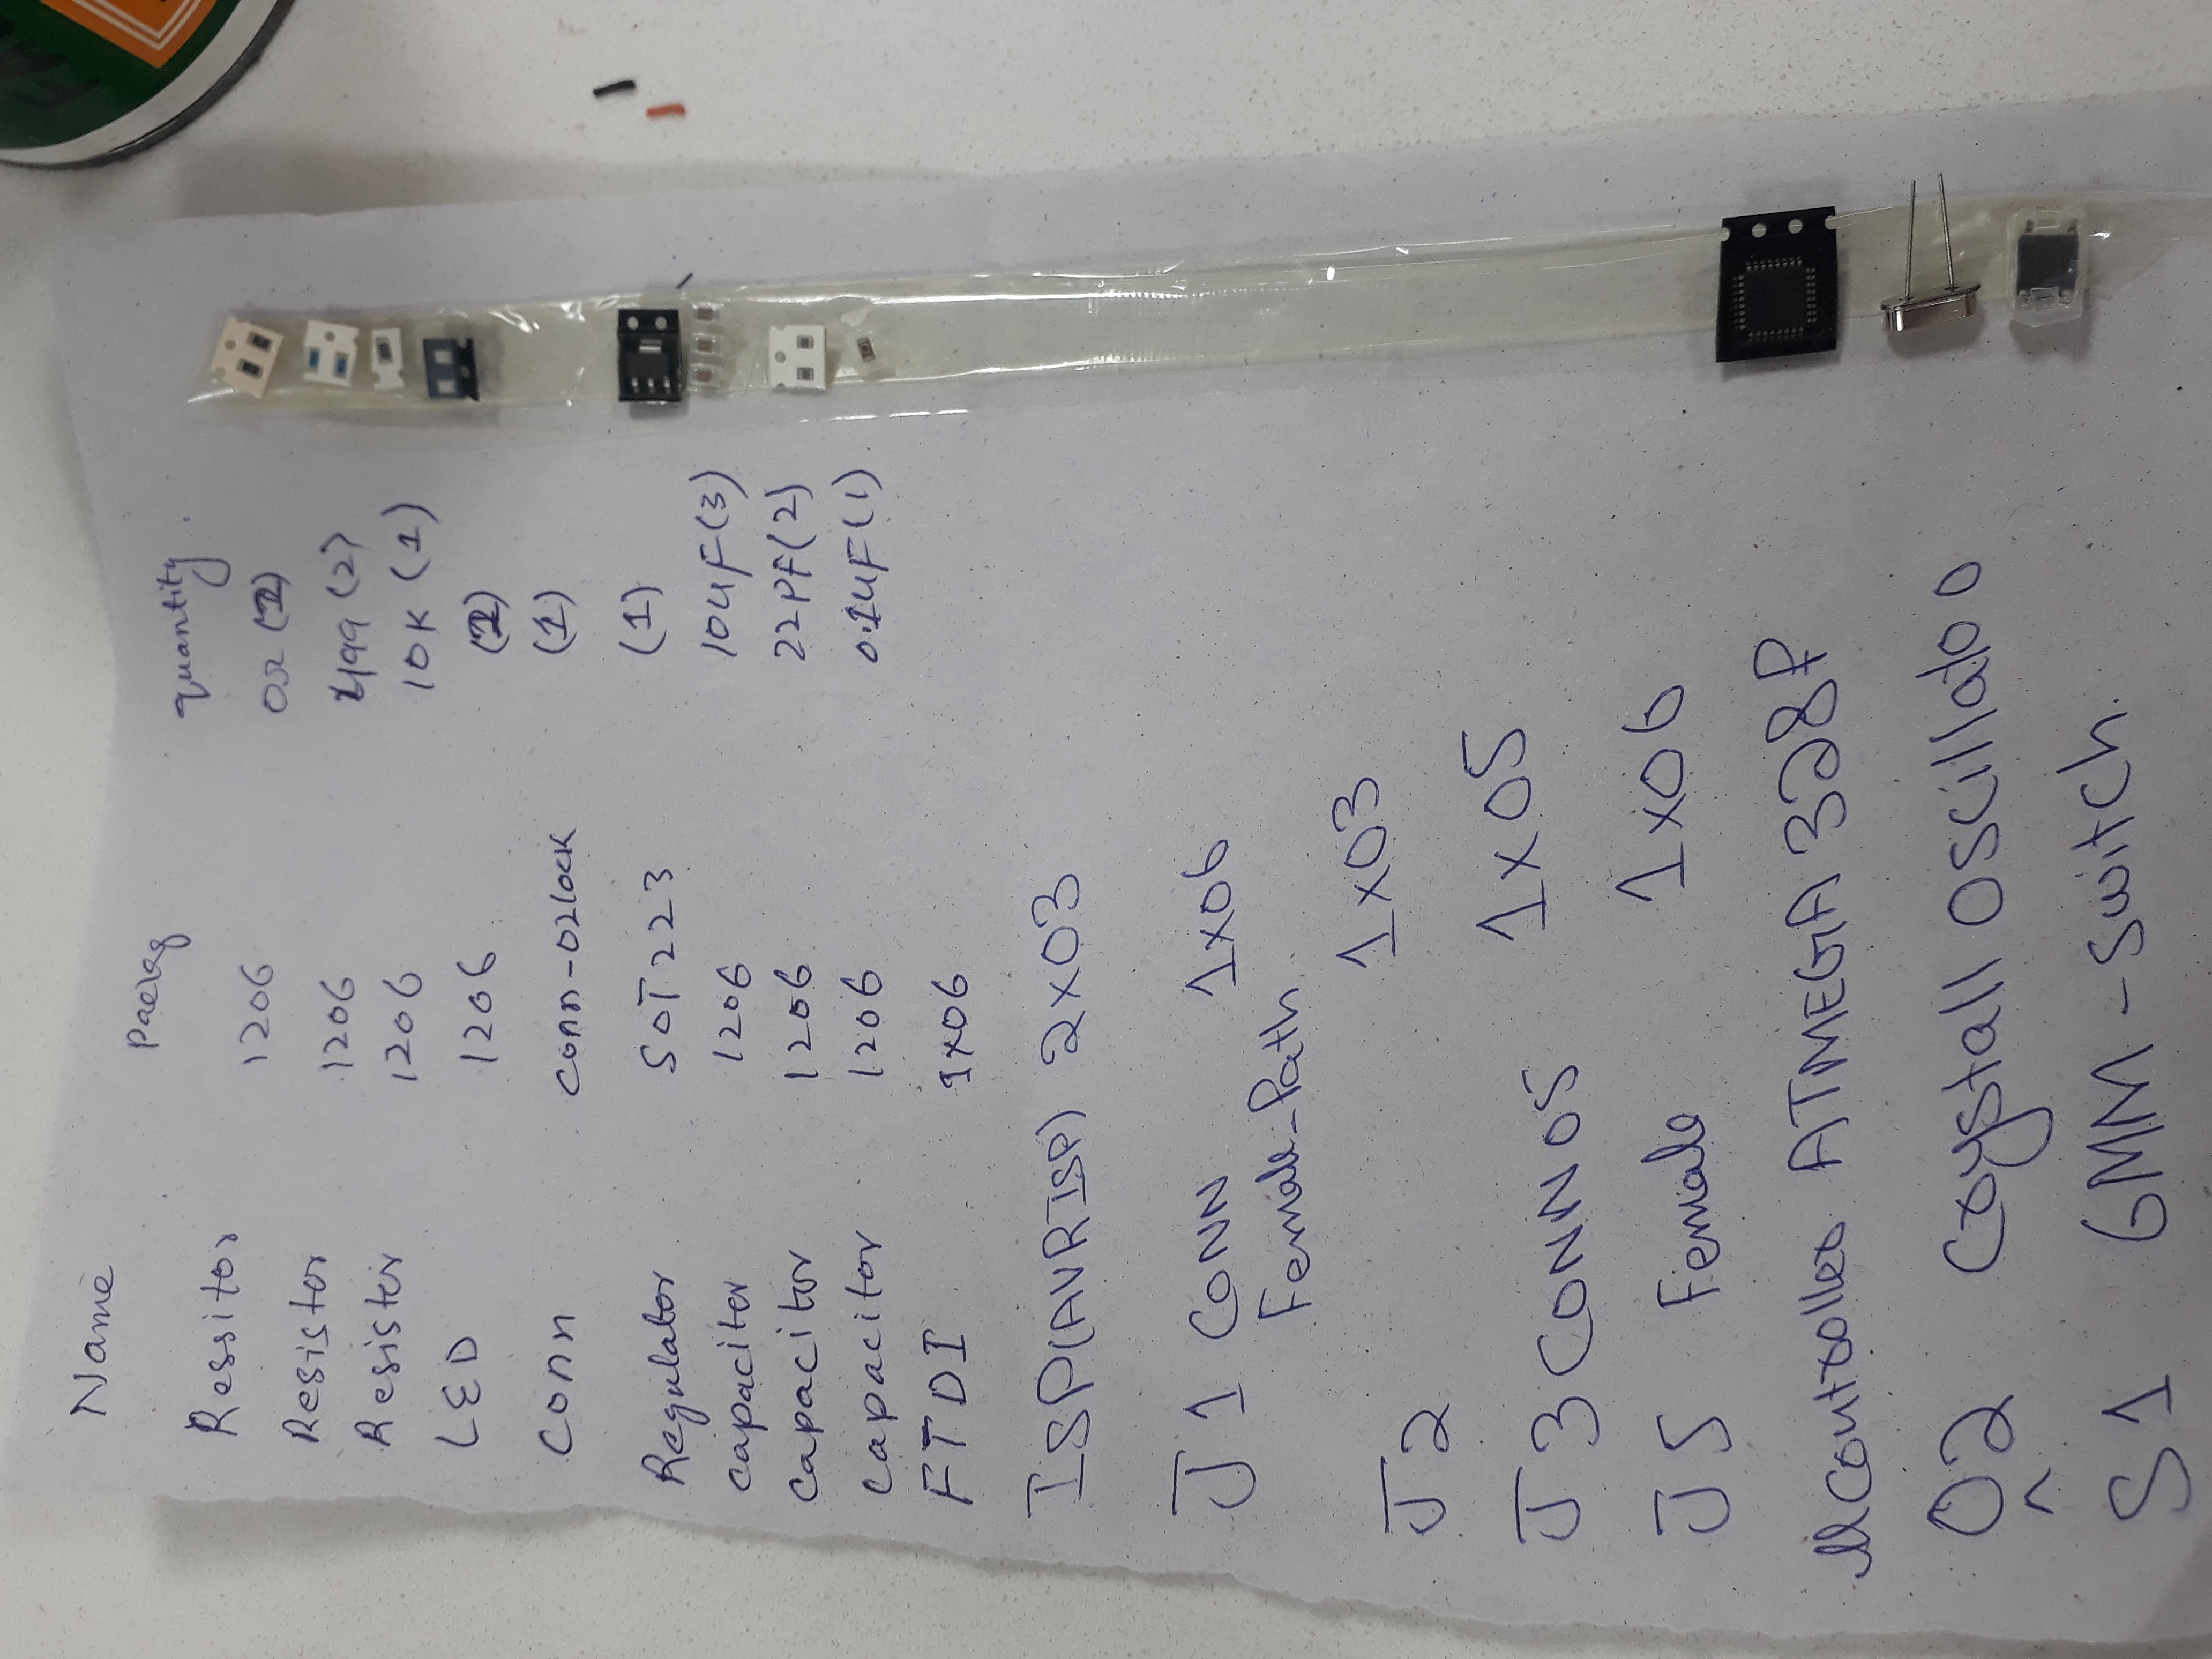 Name Packg quantity
Ressitor 1206 0Ω (2)
Resistor 1206 499 (2)
Resistor 1206 10K (1)
LED 1206 (2)
Conn Conn-02lock (1)
Regulator SOT223 (1)
capacitor 1206 10uF(3)
capacitor 1206 22PF(2)
capacitor 1206 0.1uF(1)
FTDI 1x06
ISP(AVRISP) 2x03
J1 CONN 1x06
Female-Path
J2 1x03
J3 CONN 05 1x05
J5 Female 1x06
ATMEGA328P
02 Crystall OSCillator
S1 6MM-Switch